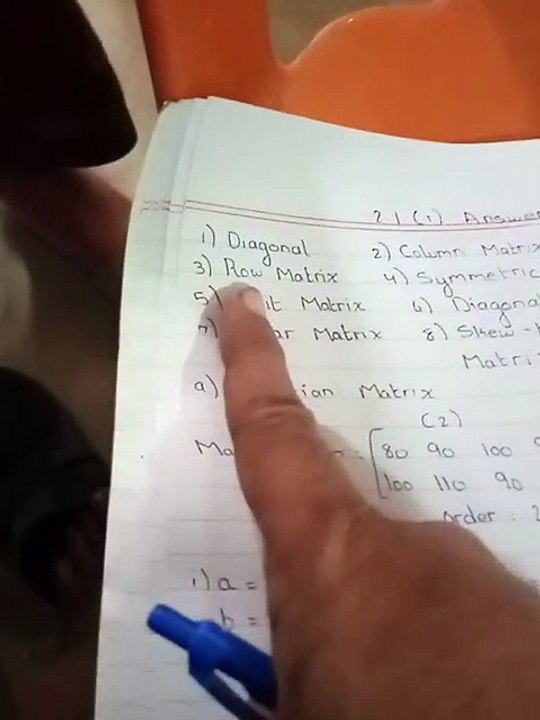 2.1 (1) Answer
1) Diagonal 2) Column Matrix
3) Row Matrix 4) Symmetric
5) it Matrix 6) Diagonal
ar Matrix 8) Skew -
Matri
9) ian Matrix
(2)
Ma = [80 90 100
100 110 90
order : 2
1) a =
b =